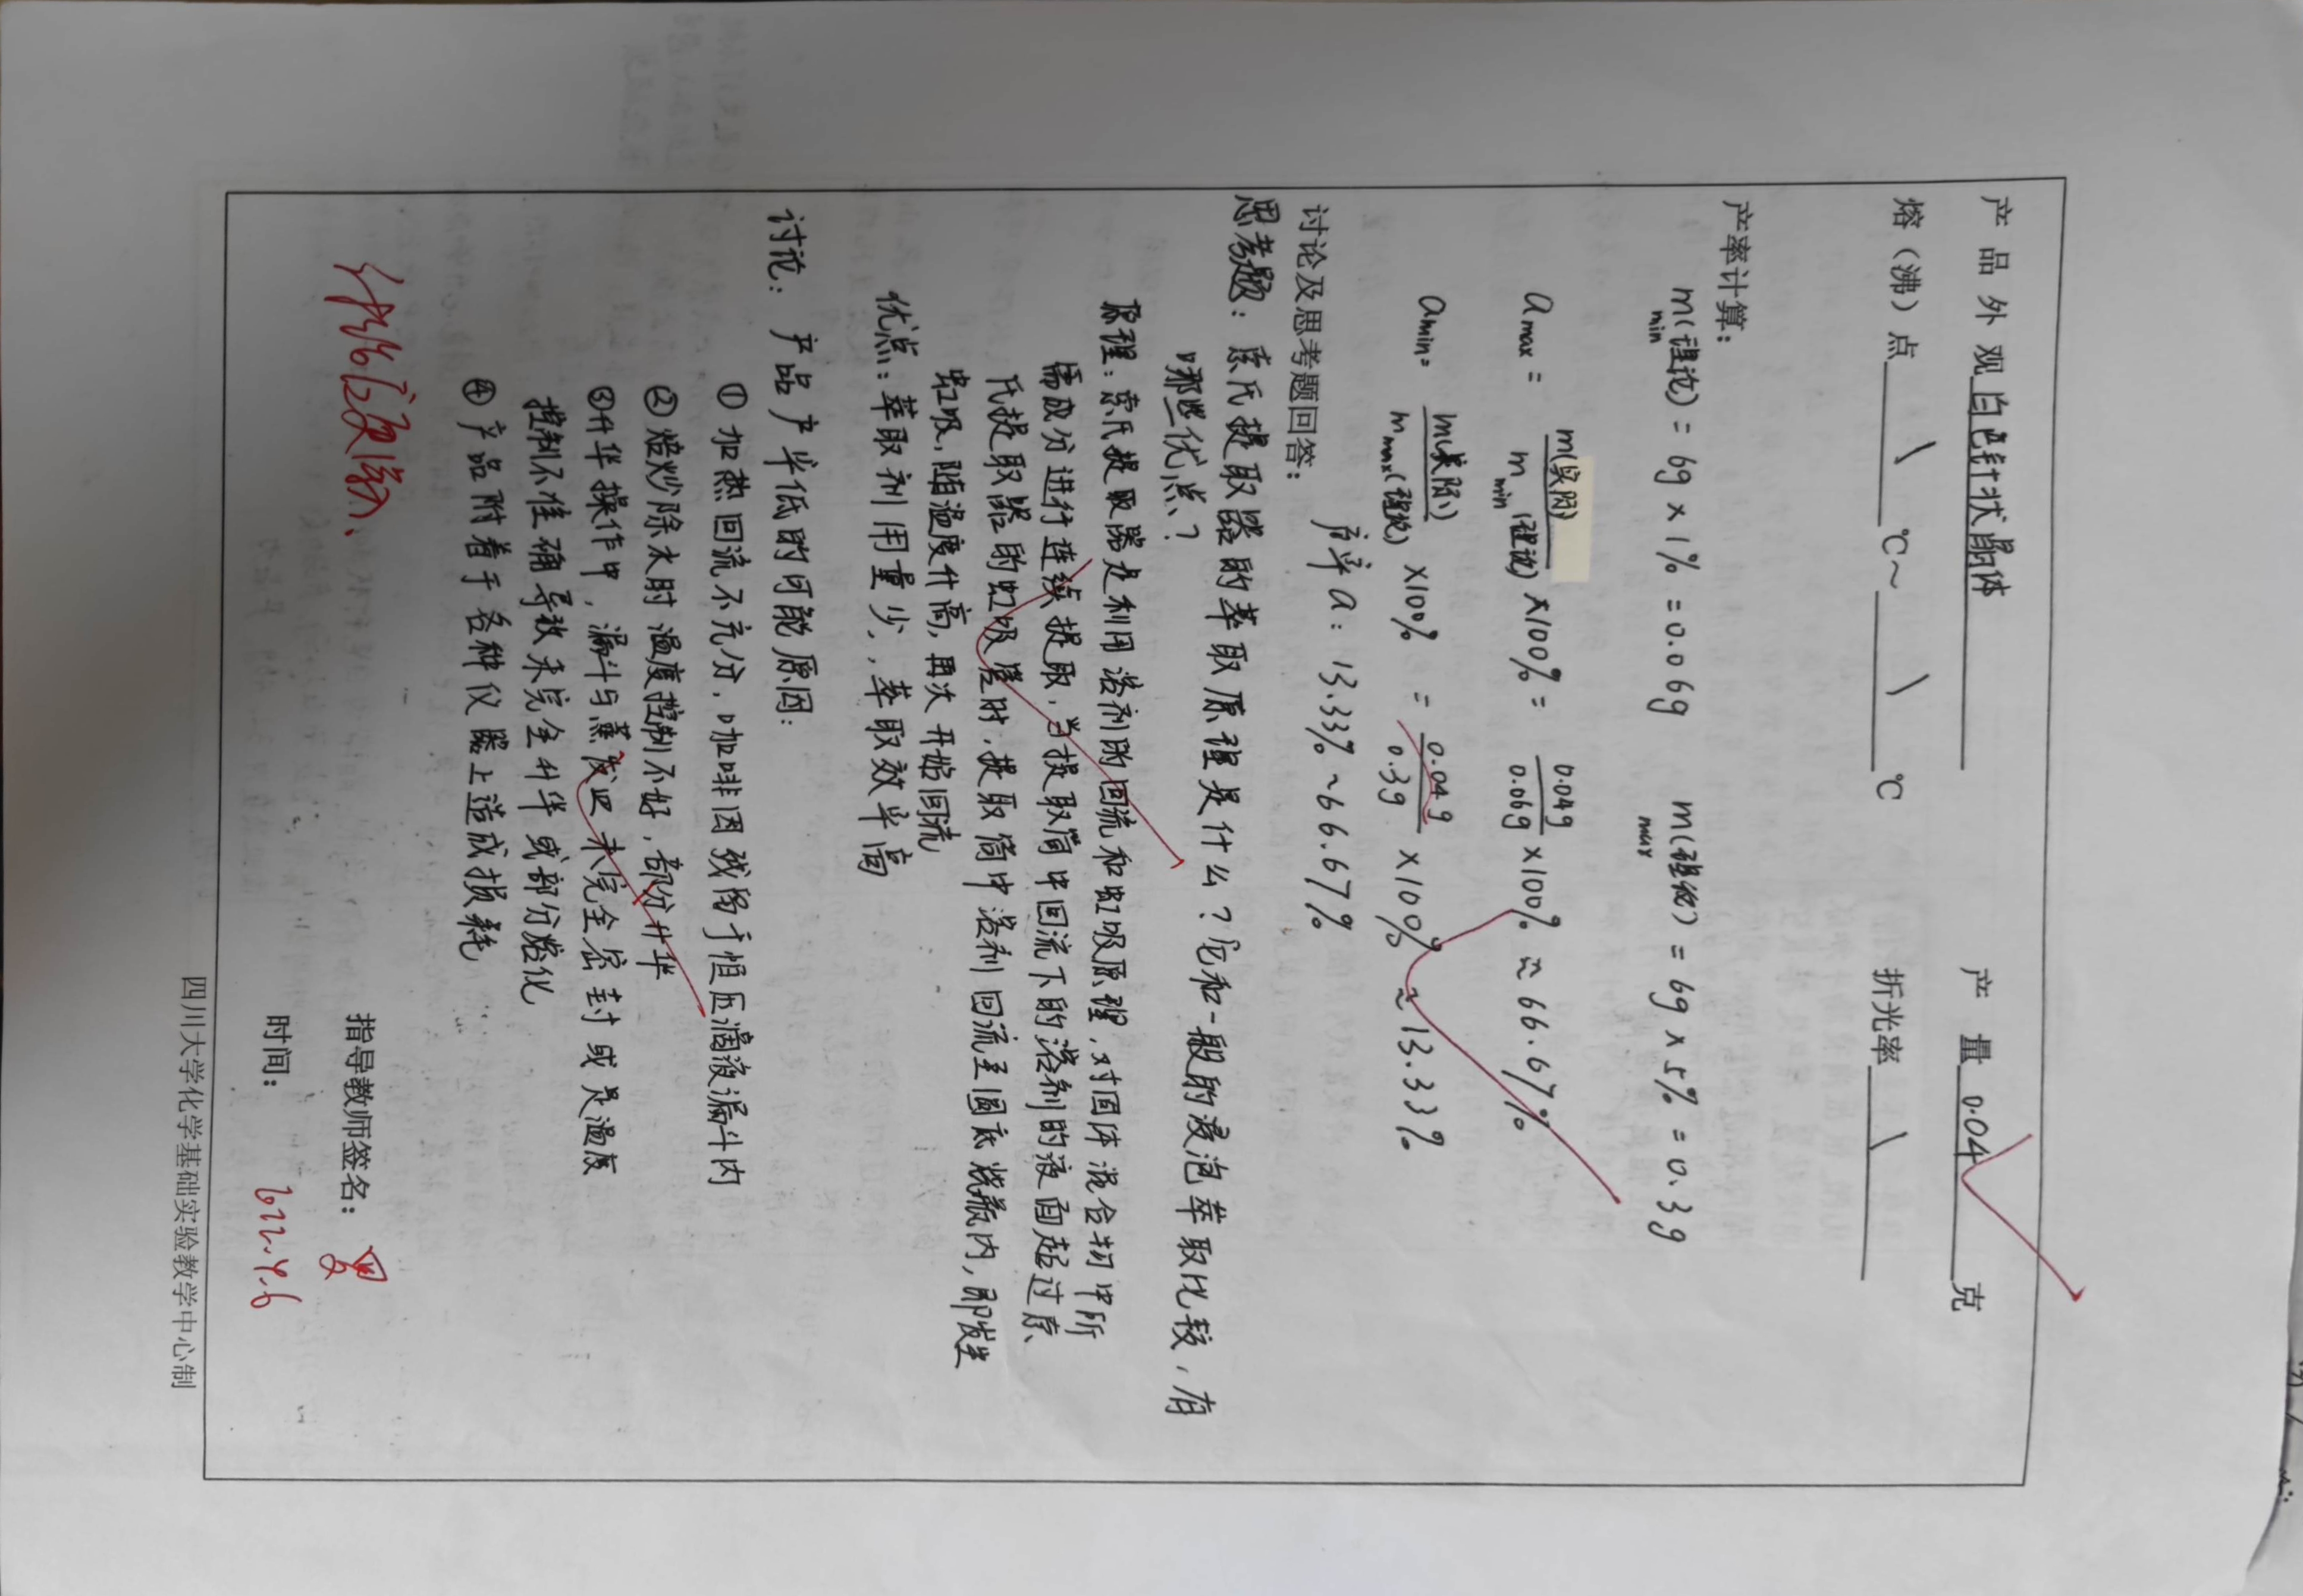 产品外观 白色针状晶体 产量 0.04 克
熔（沸）点 \ ℃~ \ ℃ 折光率 \
产率计算：
m min(理论) = 6g × 1% = 0.06g m max(理论) = 6g × 5% = 0.3g
a max = m(实际) / m min(理论) × 100% = 0.04g / 0.06g × 100% ≈ 66.67%
a min = m(实际) / m max(理论) × 100% = 0.04g / 0.3g × 100% ≈ 13.33%
产率a： 13.33% ~ 66.67%
讨论及思考题回答：
思考题：索氏提取器的萃取原理是什么？它和一般的浸泡萃取比较，有
哪些优点？
原理：索氏提取器是利用溶剂的回流和虹吸原理，对固体混合物中所
需成分进行连续提取，当提取筒中回流下的溶剂的液面超过索
氏提取器的虹吸管时，提取筒中溶剂回流至圆底烧瓶内，即发生
虹吸，随温度升高，再次开始回流
优点：萃取剂用量少，萃取效率高
讨论：产品产率低的可能原因：
① 加热回流不充分，咖啡因残留于恒压滴液漏斗内
② 焙炒除水时温度控制不好，部分升华
③ 升华操作中，漏斗与蒸发皿未完全密封或是温度
控制不准确导致未完全升华或部分炭化
④ 产品附着于各种仪器上造成损耗
指导教师签名：
时间： 622.4.6
四川大学化学基础实验教学中心制